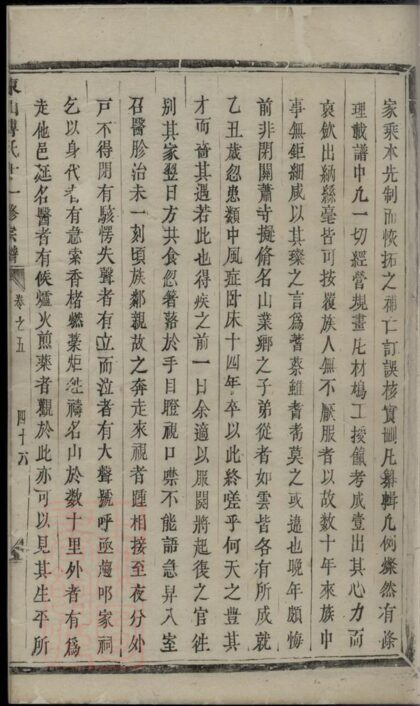 家乘本先制而恢拓之補亡訂誤核實刪凡纂輯凡例燦然有條
理載譜中凡一切經營規畫庀材鳩工授餼考成壹出其心力而
哀欽出納絲毫皆可按覆族人無不厭服者以故數十年來族中
事無鉅細咸以其璨之言為蓍蔡雖耆耇莫之或違也晚年頗悔
前非閉關蕭寺擬脩名山業鄉之子弟從者如雲皆各有所成就
乙丑歲忽患類中風症因床十四年卒以此終嗟乎何天之豐其
才而嗇其遇若此也得疾之前一日余適以服闋將起復之官徃
別其家翌日方共食忽箸落於手目瞪視口噤不能語急舁入室
召醫胗治未一刻頃族鄰親故之奔走來視者踵相接至夜分外
戸不得閉有駭愕失聲者有立而泣者有大聲號呼亟趨叩家祠
乞以身代者有意索香楮燃藁炬徃禱名山於數十里外者有為
走他邑延名醫者有候爐火煎藥者觀於此亦可以見其生平所
東山傅氏十一修宗譜
卷之五
四十六